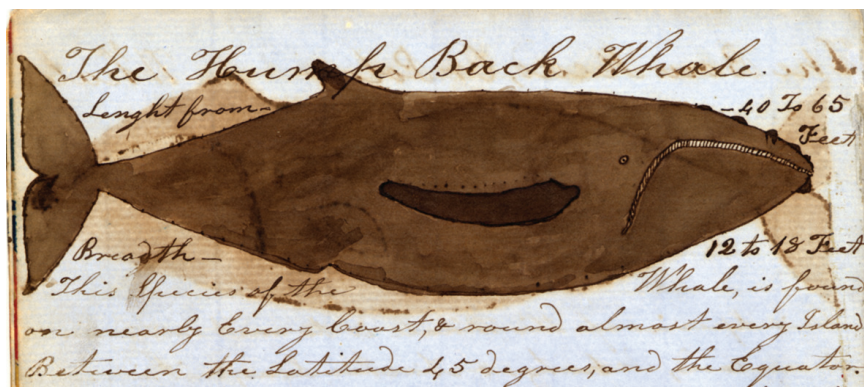 The Hump Back Whale.
Lenght from - - 40 To 65
Feet
Breadth - 12 to 18 Feet
This Species of the Whale, is found
on nearly Every Coast, & round almost every Island
Between the Latitude 45 degrees, and the Equator